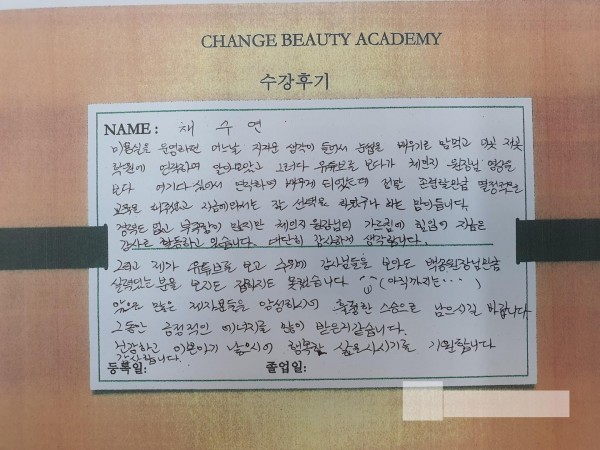 CHANGE BEAUTY ACADEMY
수강후기
NAME : 채 수 연
미용실을 운영하면 어느날 지겨운 생각이 들어서 눈썹을 배우기로 맘먹고 이곳 저곳
학원에 연락하며 알아보았고 그러다 유튜브로 보다가 채의진 원장님 영상을
보다 여기다 싶어서 연락하여 배우게 되었는데 정말 존경할만큼 열정적으로
교육은 해주셨고 지금에와서는 잘 선택을 하였구나 하는 맘이듭니다.
경력도 없고 부족함이 많지만 원장님의 가르침에 힘입어 지금은
강사로 활동하고 있습니다. 대단히 감사하게 생각합니다.
그리고 제가 유튜브로 보고 주위에 강사님들을 보아도 원장님만큼
실력있는 분을 보지도 접하지도 못했습니다 (아직까지는···)
앞으로 많은 제자분들을 양성하시어 훌륭한 스승으로 남으시길 바랍니다
그동안 긍정적인 에너지를 많이 받은거같습니다.
건강하고 이쁜아기 낳으시어 행복한 삶을사시기를 기원합니다
감사합니다.
등록일: 졸업일: